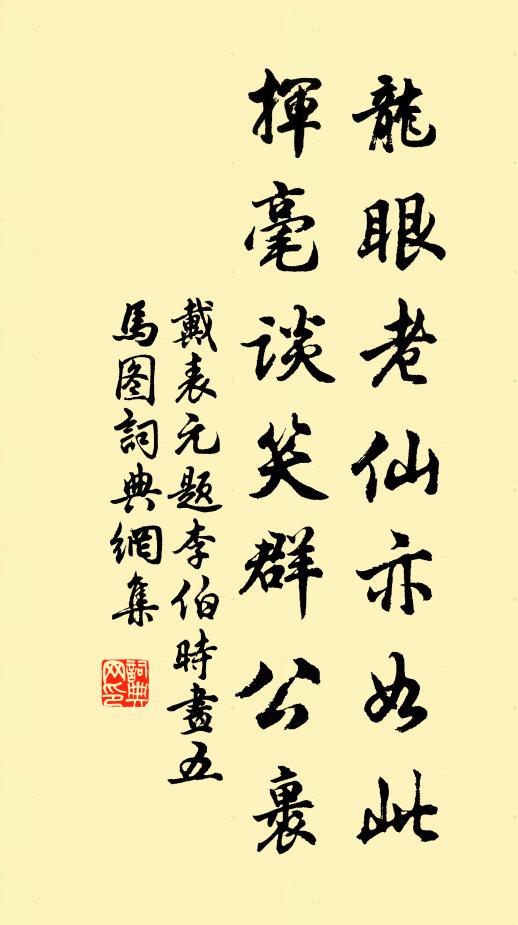 龍眼老仙亦如此
揮毫談笑群公裏
戴表元题李伯時畫五
馬图詞典網集
詞典网印